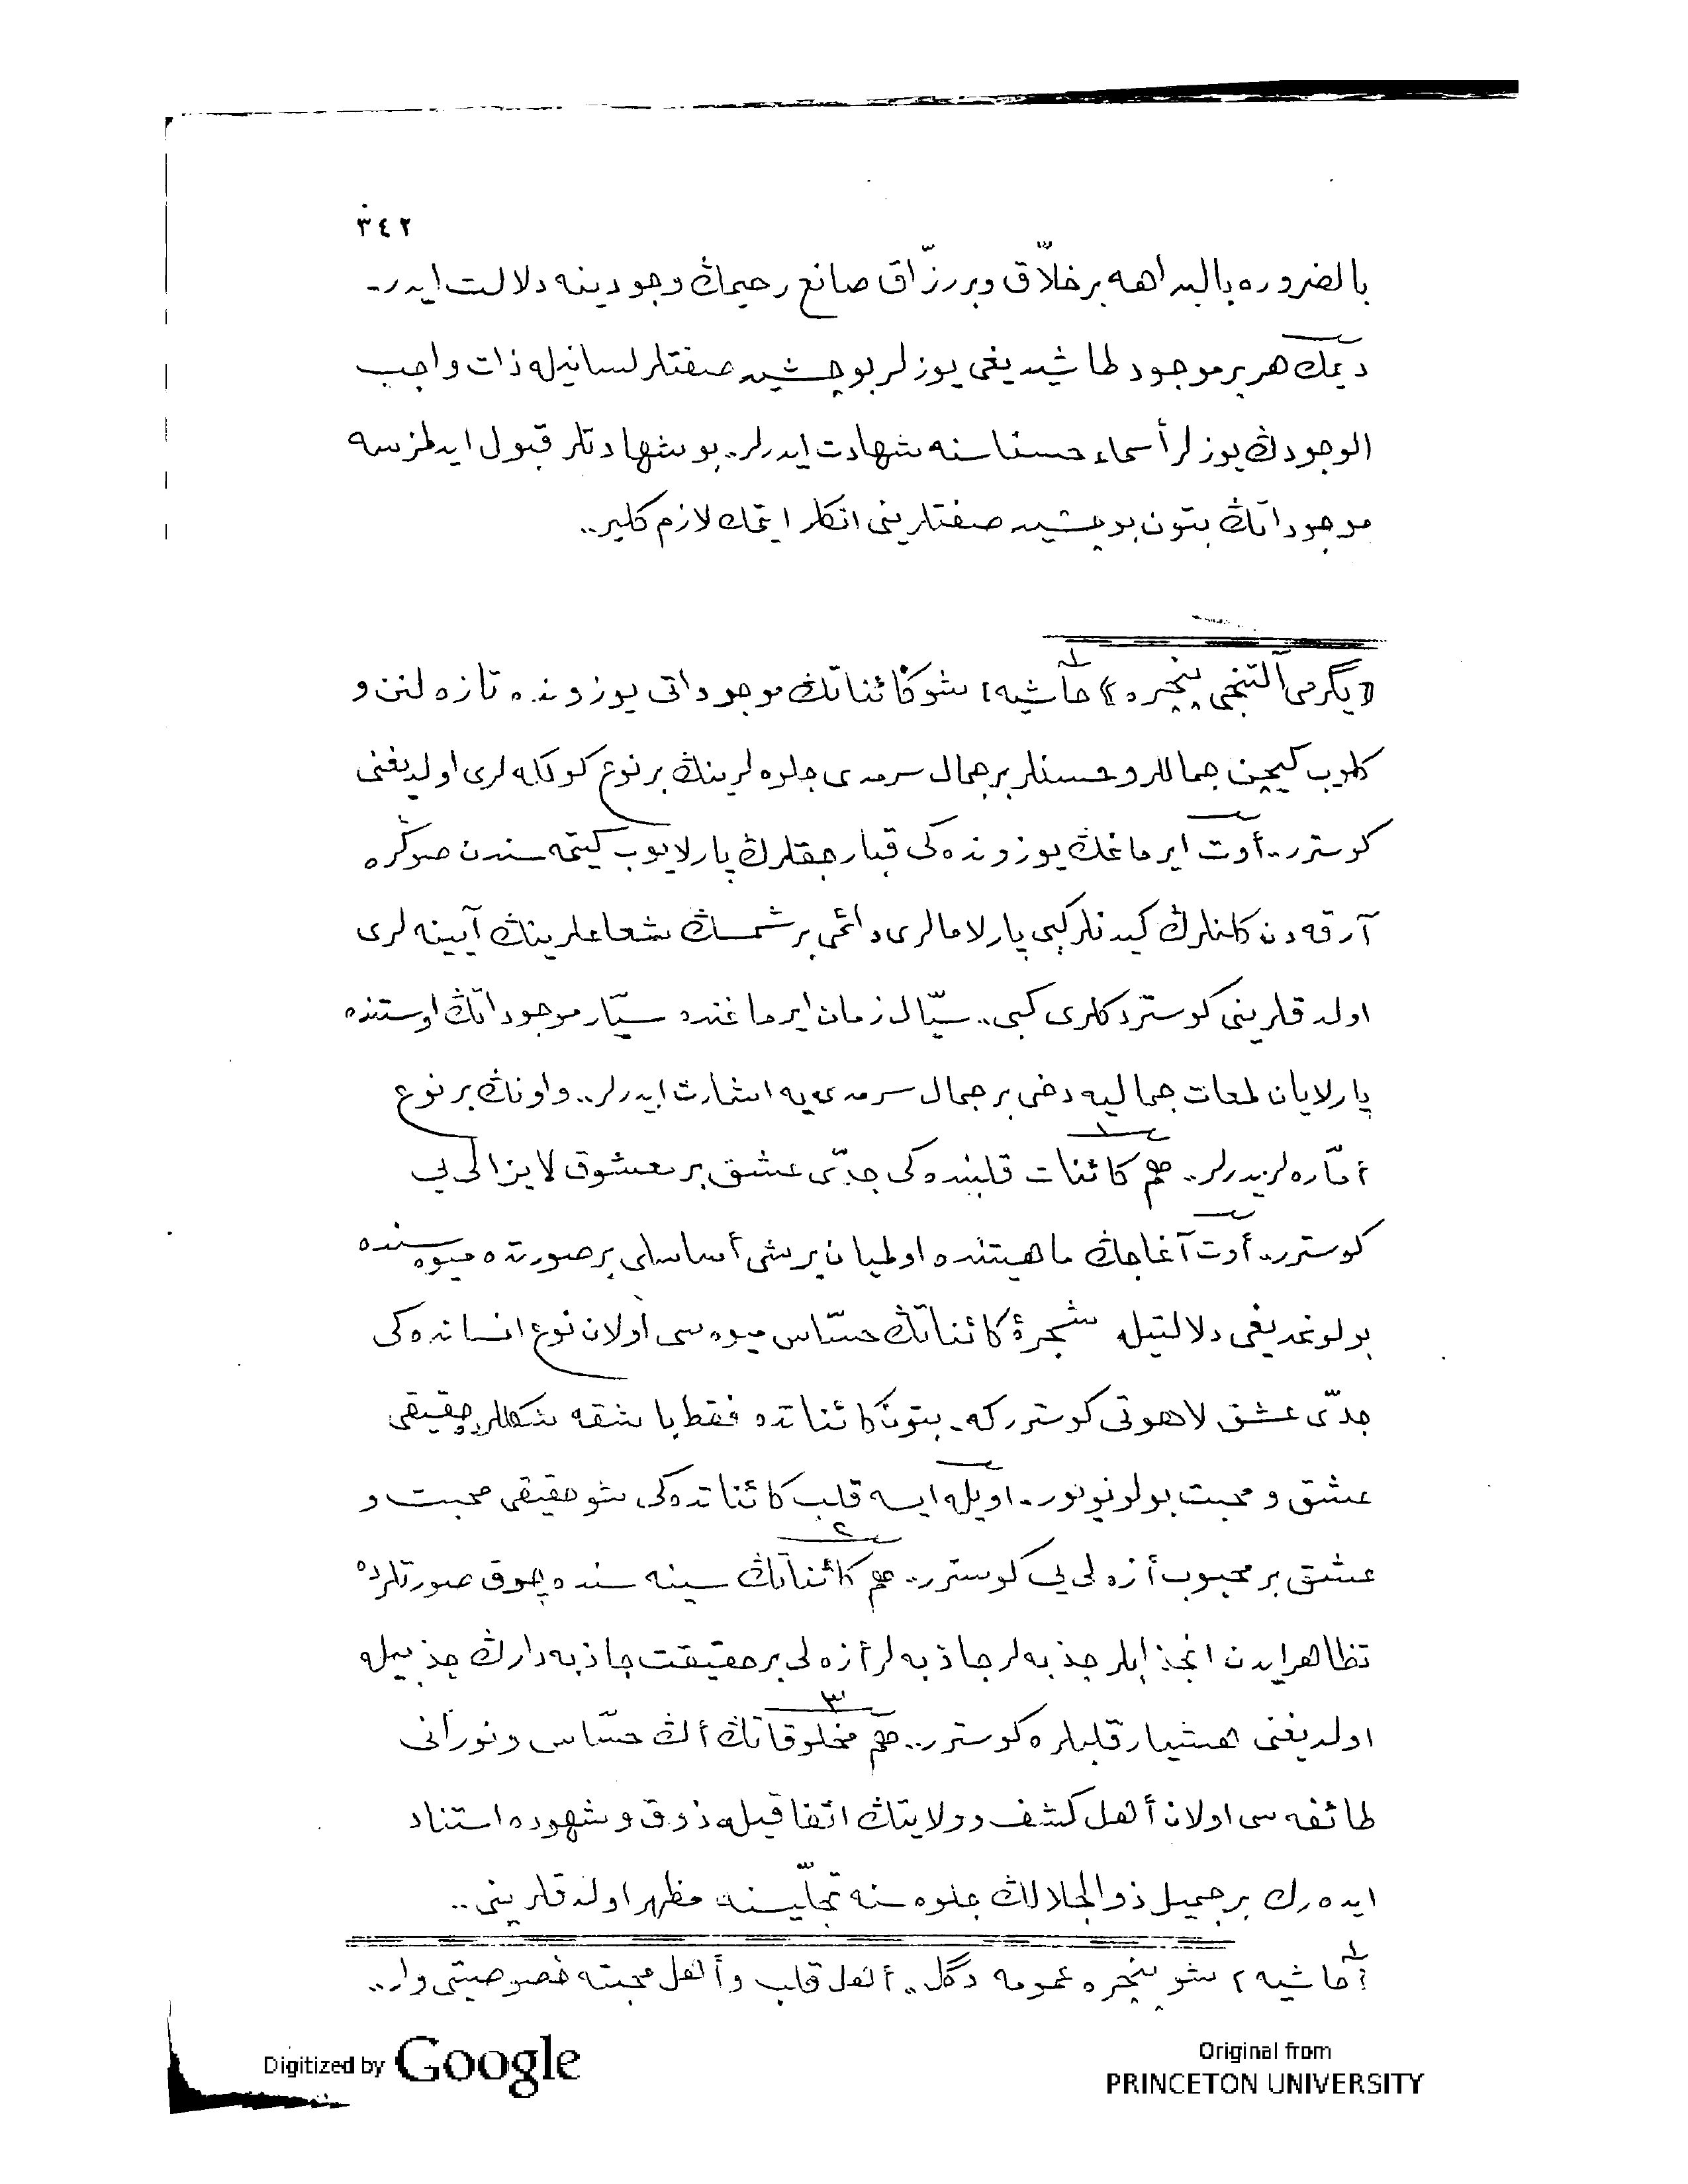 ٣٤٢
بالضروره بالبداهه برخلّاق وبررزّاق صانع رحيمڭ وجودينه دلالت ايدر..
ديمك هر برموجود طاشيديغى يوزلر بوچشيد صفتلر لسانيله ذات واجب
الوجودڭ يوزلر أسماء حسناسنه شهادت ايدرلر.. بو شهادتلر قبول ايدلمزسه
موجوداتڭ بتون بوچشيد صفتلرينى انكار ايتمك لازم كلير..
﴿يگرمى آلتنجى پنجره﴾ [حاشيه] شو كائناتڭ موجوداتى يوزونده تازه لنن و
كلوب كيچن جماللر وحسنلر برجمال سرمدى جلوه لرينڭ برنوع كولكه لرى اولديغنى
كوستررـ أوت ايرماغڭ يوزونده كى قبارجقلرڭ پارلايوب كيتمه سندن صوڭره
آرقه دن كلنلرڭ كيدنلر كبى پارلامالرى دائمى برشمسڭ شعاعلرينڭ آيينه لرى
اولدقلرينى كوستردكلرى كبى.. سيّال زمان ايرماغنده سيّار موجوداتڭ اوستنده
پارلايان لمعات جماليه دخى برجمال سرمدى يه اشارت ايدرلر.. واونڭ برنوع
أمّاره لريدرلر.. هم كائنات قلبنده كى جدّى عشق بر معشوق لايزالى يى
كوسترر.. أوت آغاجڭ ماهيتنده اولميان برشى أساسلى برصورتده ميوه سنده
بولونمديغى دلالتيله شجرۀ كائناتڭ حسّاس ميوه سى اولان نوع انسانده كى
جدّى عشق لاهوتى كوستركه. بتون كائناتده فقط باشقه شكللرده حقيقى
عشق و محبت بولونويور.. اويله ايسه قلب كائناتده كى شو حقيقى محبت و
عشق بر محبوب أزه لى يى كوسترر.. هم كائناتڭ سينه سنده چوق صورتلرده
تظاهر ايدن انجذابلر جذبه لر جاذبه لر أزه لى برحقيقت جاذبه دارڭ جذبيله
اولديغنى هشيار قلبلره كوسترر.. هم مخلوقاتڭ أڭ حسّاس ونورانى
طائفه سى اولان أهل كشف وولايتڭ اتفاقيله ذوق وشهوده استناد
ايده رك برجميل ذوالجلالڭ جلوه سنه تجلّيسنه مظهر اولدقلرينى..
[حاشيه] شو پنجره عمومه دگل.. أهل قلب وأهل محبته خصوصيتى وار..
Digitized by Google
Original from
PRINCETON UNIVERSITY